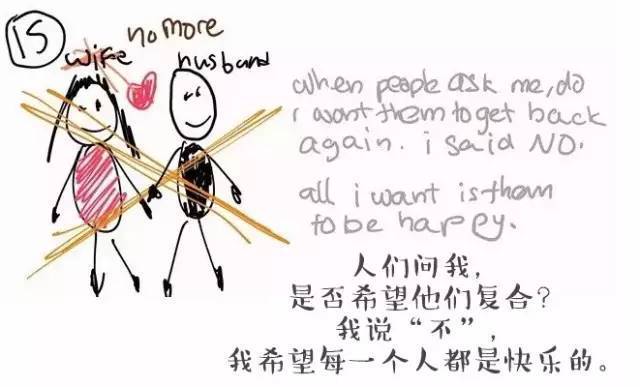 15
no more
wife
husband
when people ask me, do
i want them to get back
again. i said NO.
all i want is them
to be happy.
人们问我，
是否希望他们复合？
我说“不”，
我希望每一个人都是快乐的。